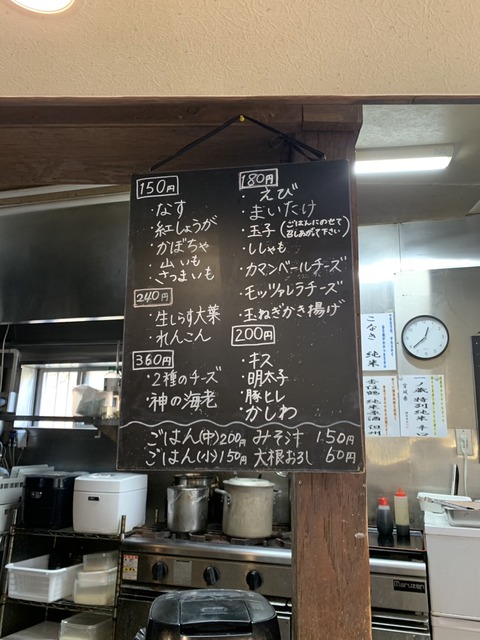 150円
・なす
・紅しょうが
・かぼちゃ
・山いも
・さつまいも
240円
・生しらす大葉
・れんこん
360円
・2種のチーズ
・神の海老
180円
・えび
・まいたけ
・玉子(ごはんにのせて
召しあがて下さい)
・ししゃも
・カマンベールチーズ
・モッツァレラチーズ
・玉ねぎかき揚げ
200円
・キス
・明太子
・豚ヒレ
・かしわ
ごはん(中)200円 みそ汁 150円
ごはん(小)150円 大根おろし 60円
こなき 純米
特別純米 辛口
Maruzen